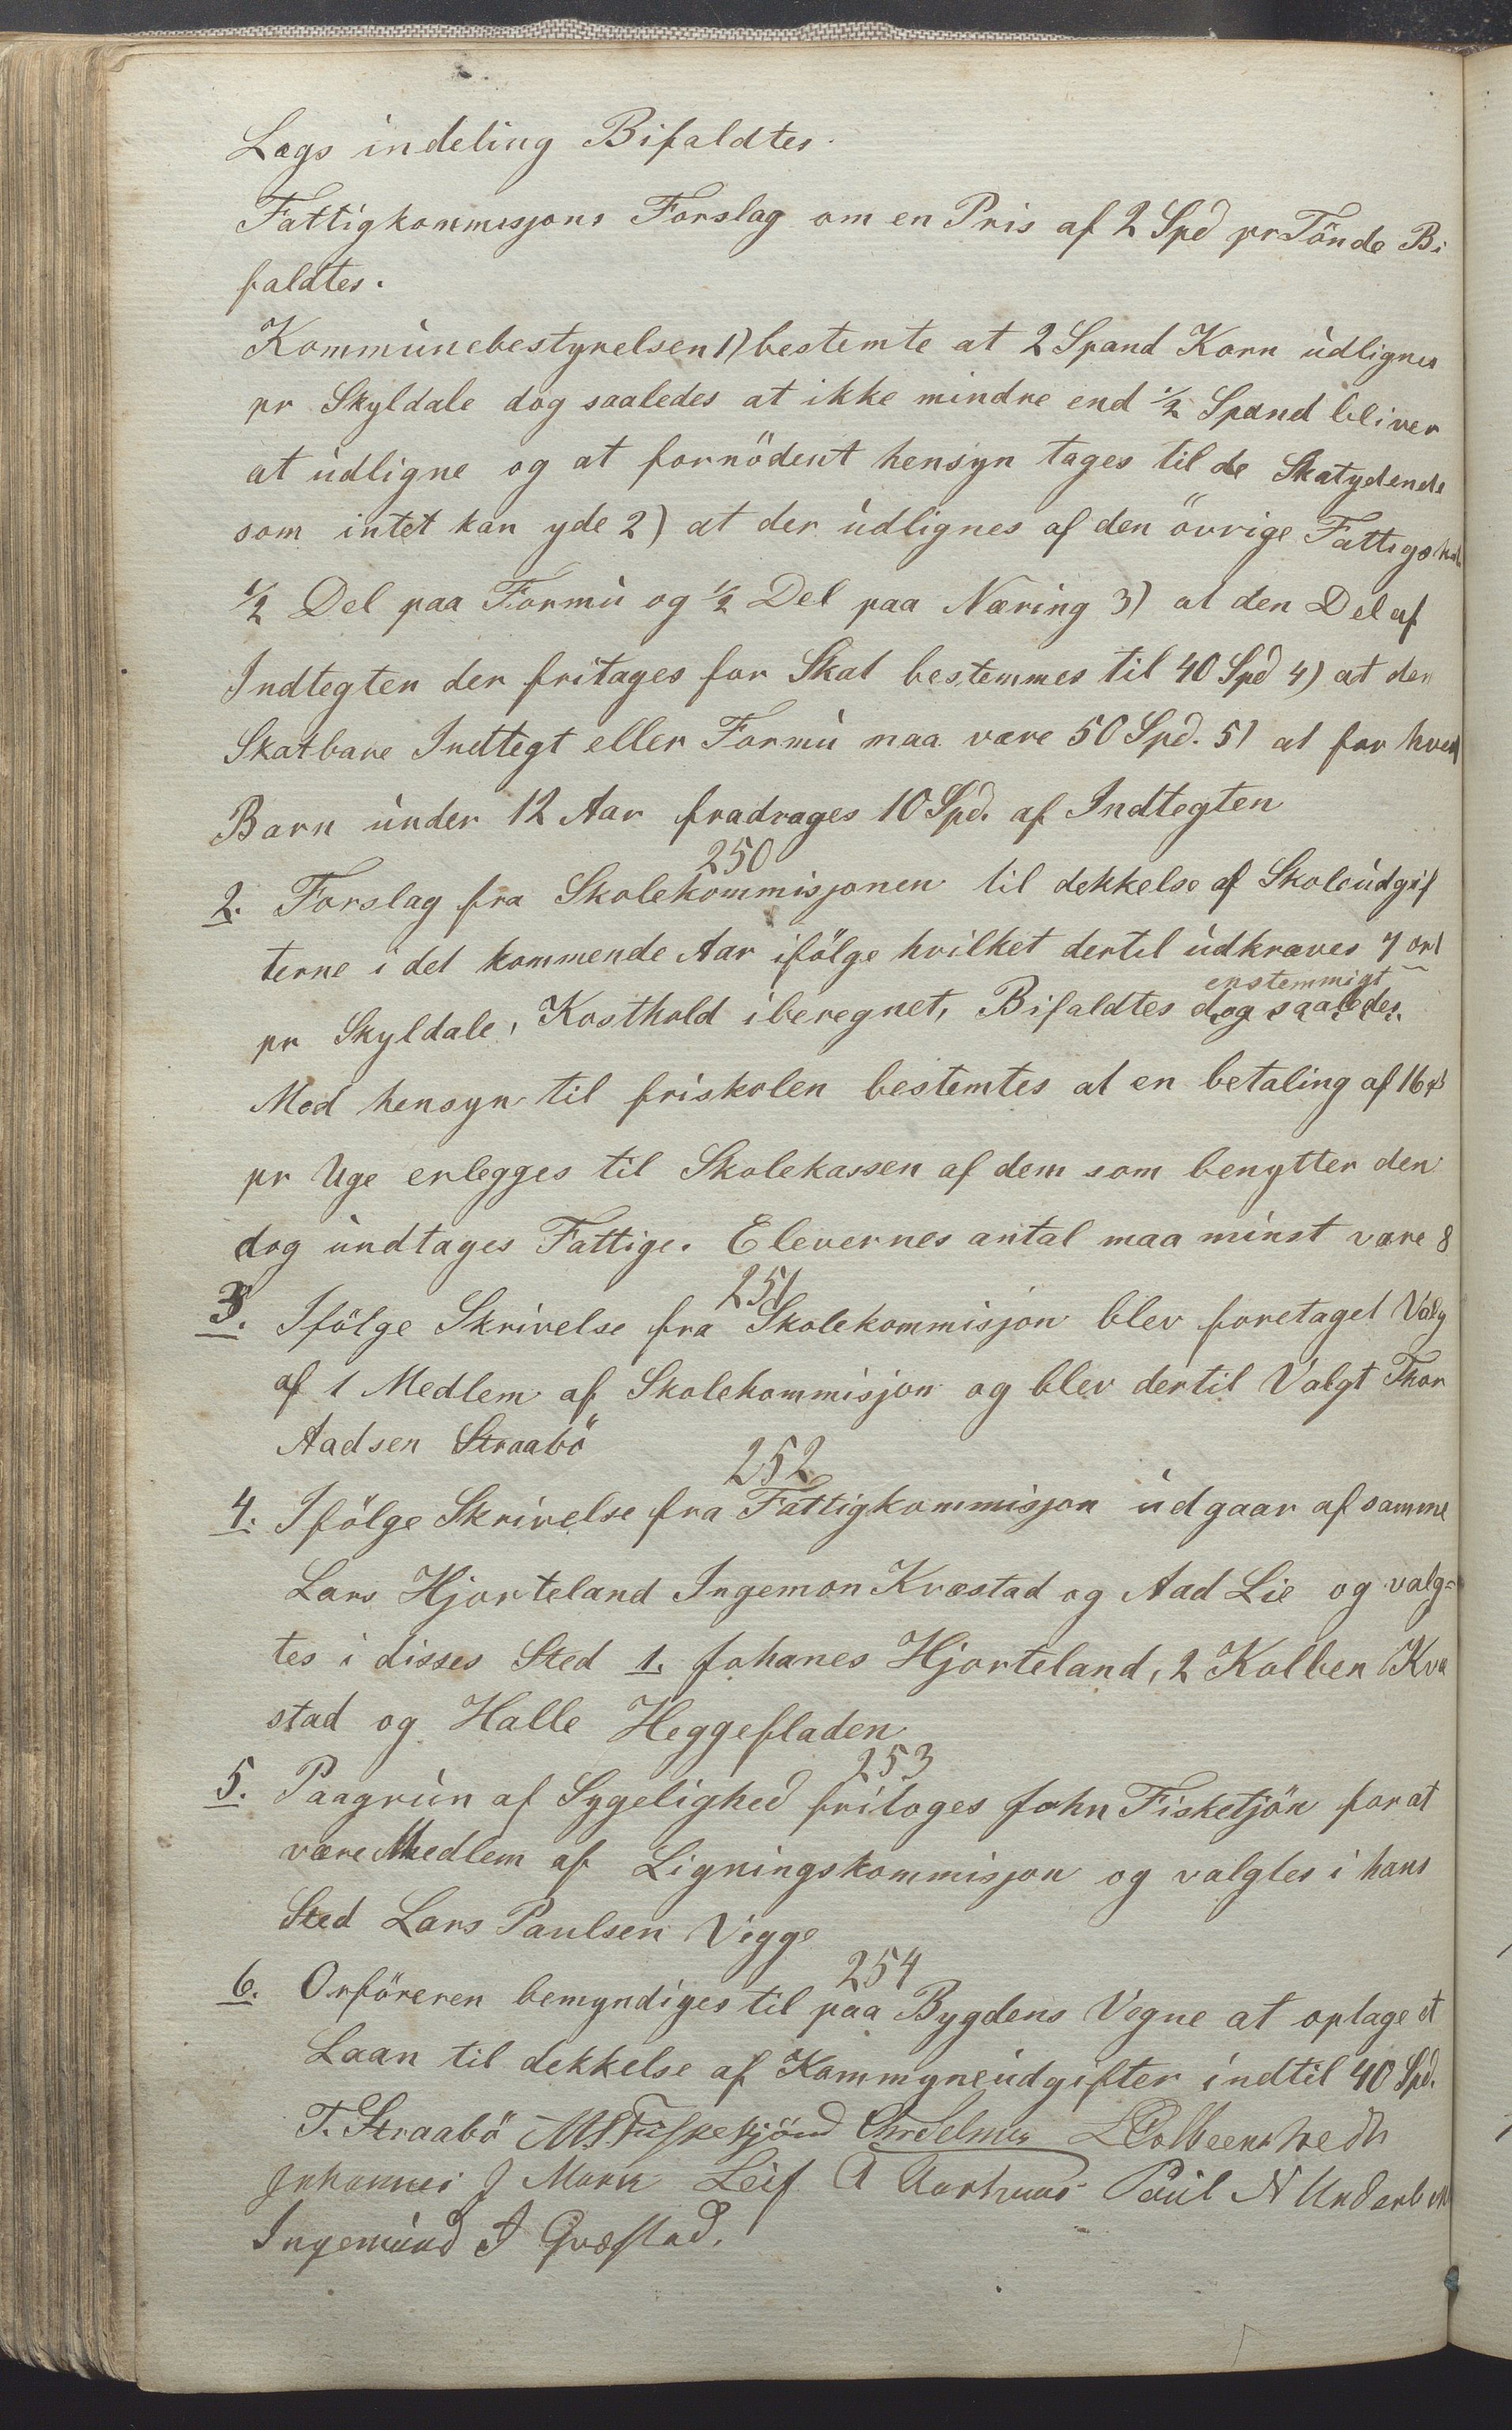 Lægs indeling Bifaldtes.
Fattigkommisjons Forslag om en Pris af 2 Spd pr Tönde Bi
faldtes.
Kommunebestyrelsen 1) bestemte at 2 Spand Korn udlignes
pr Skyldale dog saaledes at ikke mindre end 1/2 Spand bliver
at udligne og at fornödent hensyn tages til de Skatydende
som intet kan yde 2) at der udlignes af den övrige
1/2 Del paa Formu og 1/2 Del paa Næring 3) at den Del af
Indtegten der fritages for Skat bestemmes til 40 Spd 4) at den
Skatbare Indtegt eller Formu maa være 50 Spd. 5) at for hvert
Barn under 12 Aar fradrages 10 Spd. af Indtegten
250
2. Forslag fra Skolekommisjonen til dekkelse af Skoleudgif
terne i det kommende Aar ifölge hvilket dertil udkræves 7 ort
enstemmigt
pr Skyldale, Kosthold iberegnet, Bifaldtes dog saaledes.
Med hensyn til friskolen bestemtes at en betaling af 16 β
pr Uge erlegges til Skolekassen af dem som benytter den
dog undtages Fattige. Elevernes antal maa minst være 8
251
3. Ifölge Skrivelse fra Skolekommisjon blev foretaget Valg
af 1 Medlem af Skolekommisjon og blev dertil Valgt Thor
Aadsen Straabö
252
4. Ifölge Skrivelse fra Fattigkommisjon udgaar af samme
Lars Hjorteland Ingemon Kvæstad og Aad Lie og valg=
tes i disses Sted 1. Johanes Hjorteland, 2 Kolben Kvæ
stad og Halle Heggefladen
253
5. Paagrun af Sygelighed fritoges John Fisketjön for at
være Medlem af Ligningskommisjon og valgtes i hans
Sted Lars Paulsen Vigge
254
6. Orföreren bemyndiges til paa Bygdens Vegne at optage et
Laan til dekkelse af Kommyneudgifter indtil 40 Spd.
T. Straabö
Johannes J Mork Leif A Aarhuus Paul N
Ingemund A Qvæstad.